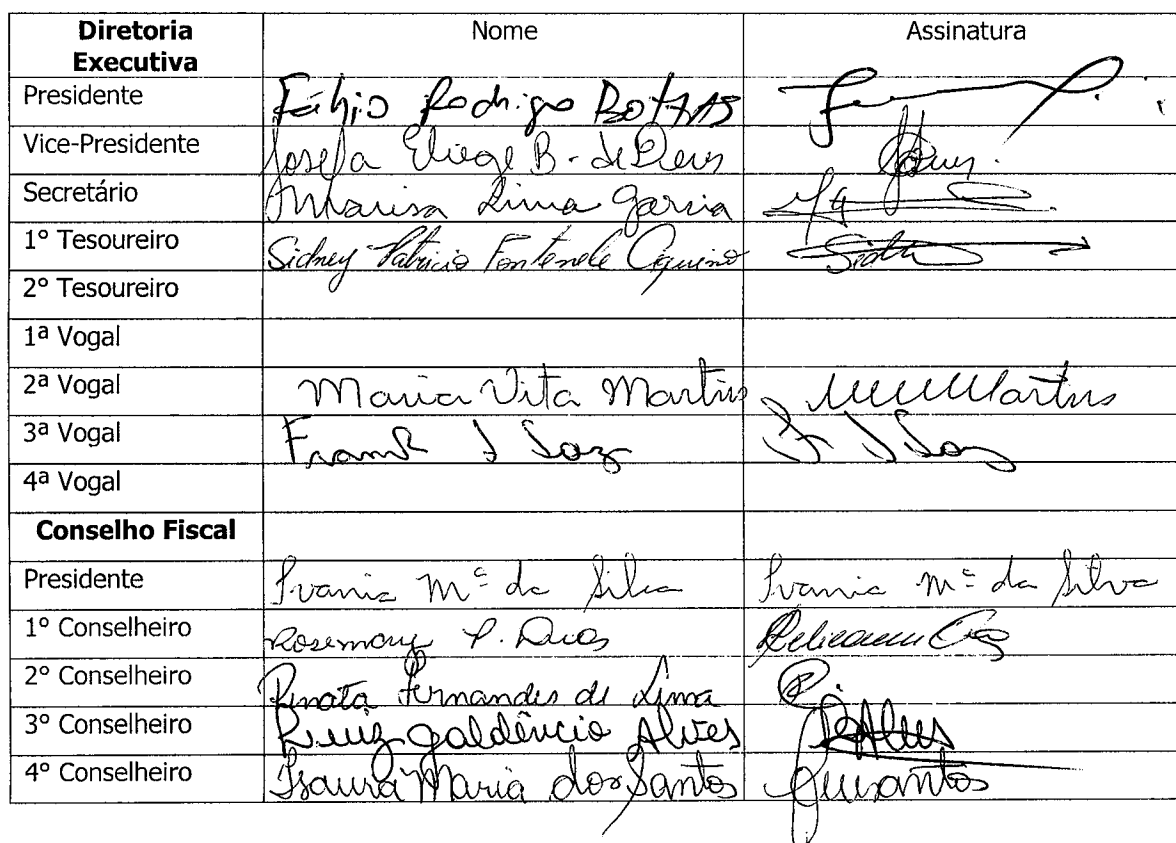 Diretoria Executiva Nome Assinatura
Presidente Fábio Rodrigo Bottas
Vice-Presidente Josefa Eliege B. de Deus
Secretário Marisa Lima Garcia
1º Tesoureiro Sidney Patricio Fontenele Aquino Sidn
2º Tesoureiro
1ª Vogal
2ª Vogal Maria Vita Martins Martins
3ª Vogal Frank J
4ª Vogal
Conselho Fiscal
Presidente Ivania Mª da Silva Ivania Mª da Silva
1º Conselheiro Rosemary P. Dias
2º Conselheiro Renata Fernandes de Lima
3º Conselheiro Luiz Galdêncio Alves
4º Conselheiro Isaura Maria dos Santos